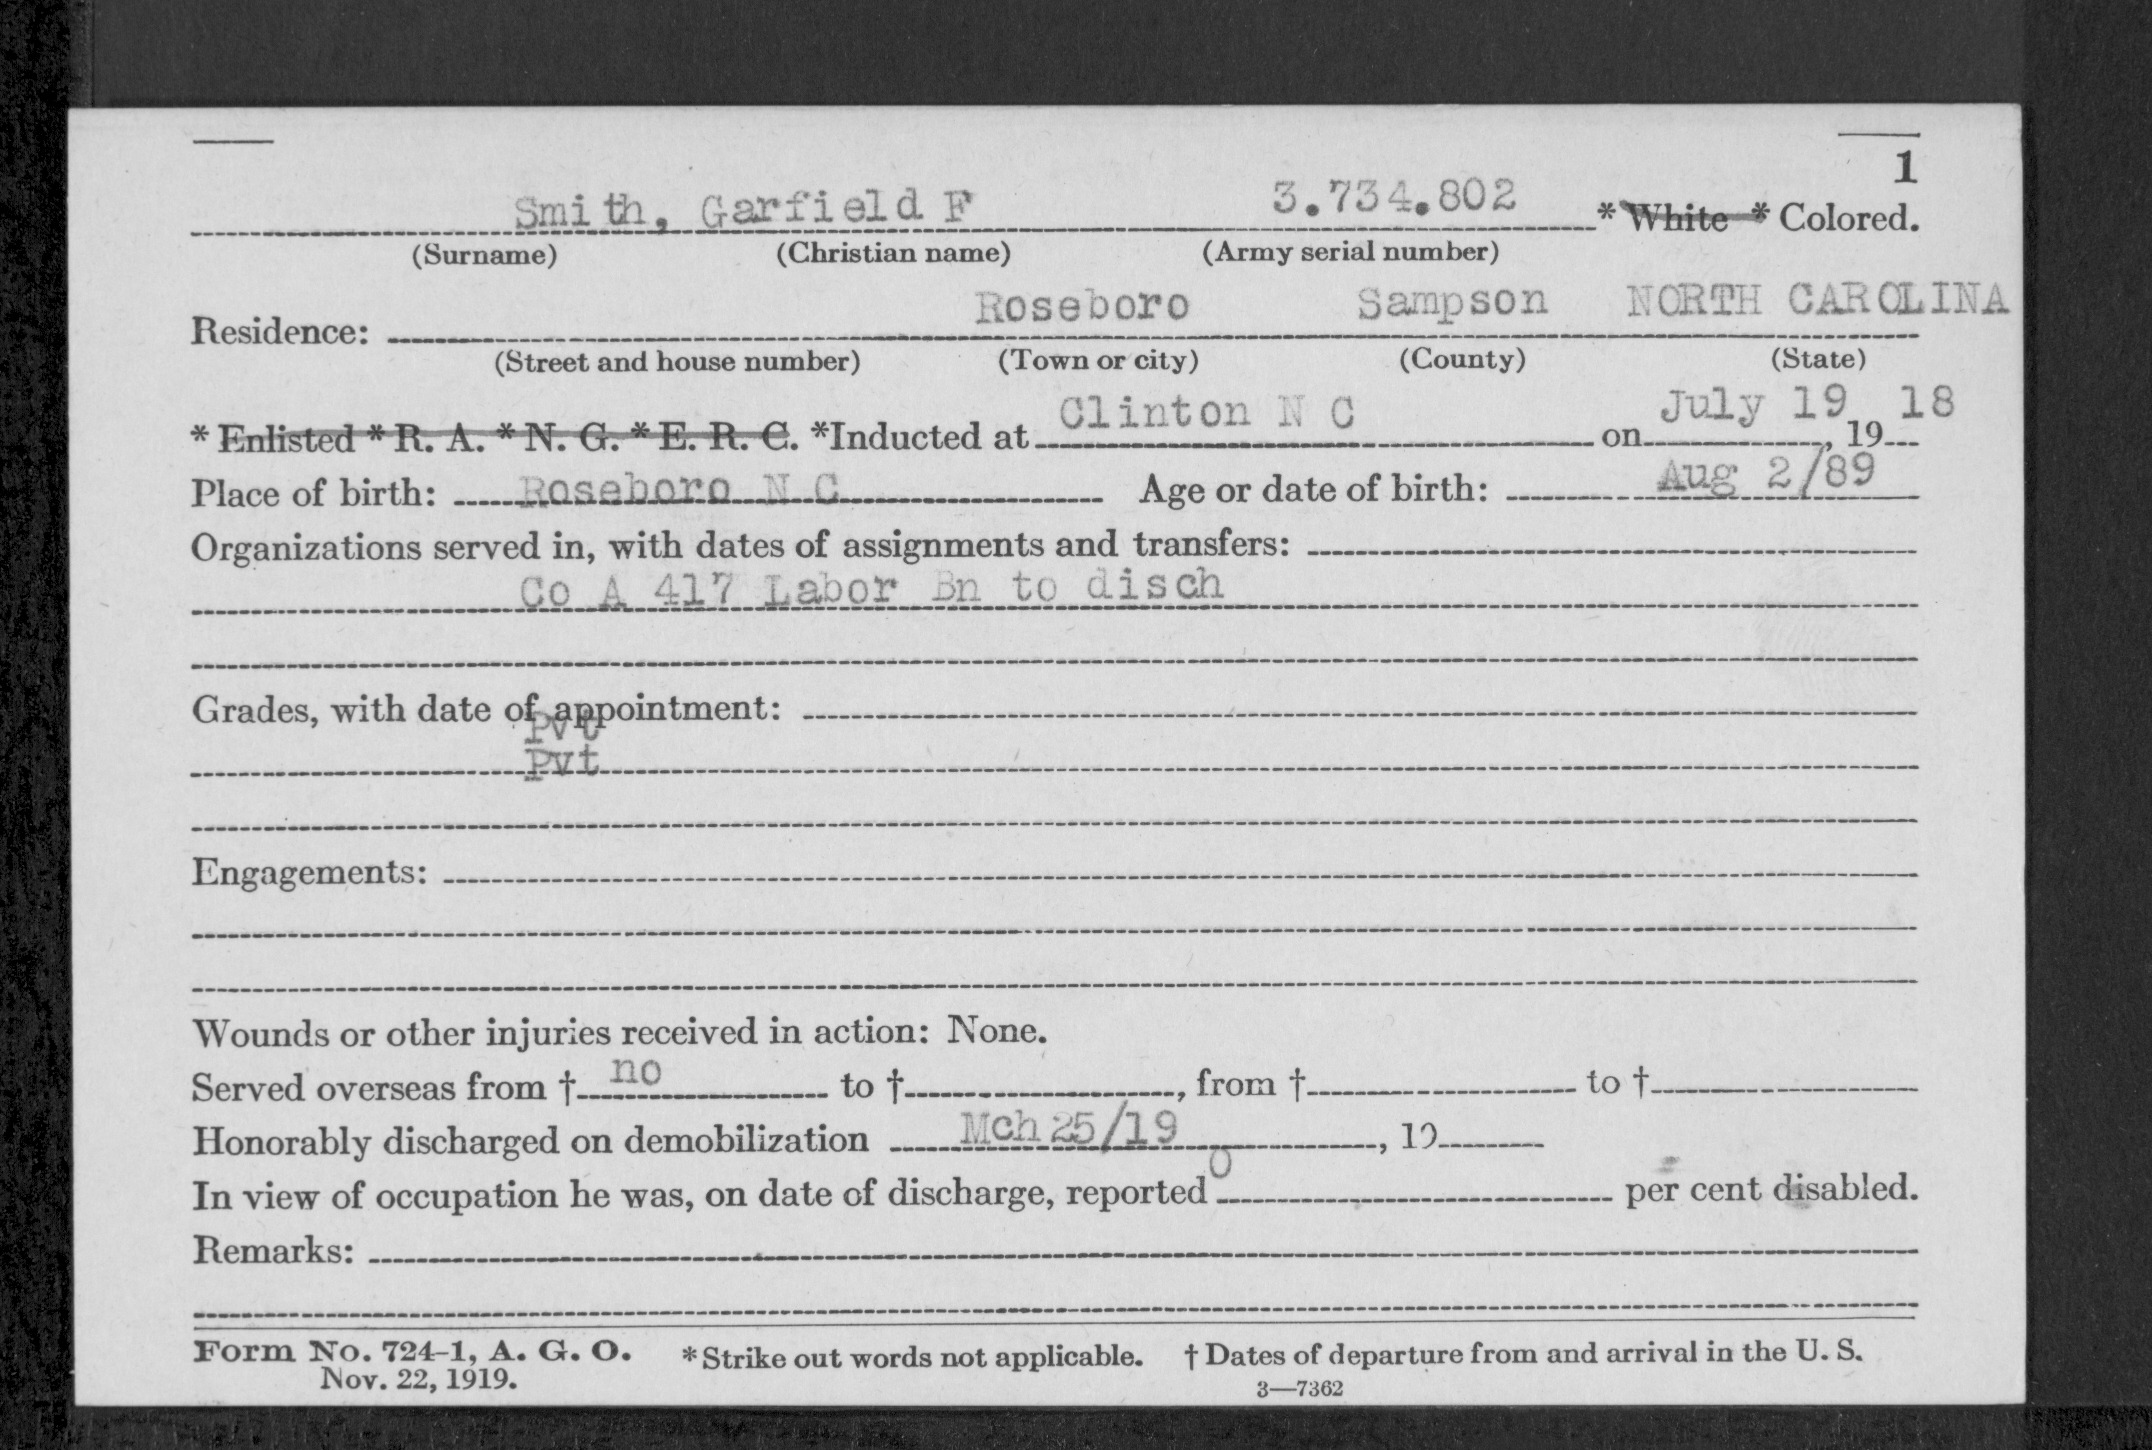 1
Smith, Garfield F 3.734.802 * White * Colored.
(Surname) (Christian name) (Army serial number)
Roseboro Sampson NORTH CAROLINA
Residence:
(Street and house number) (Town or city) (County) (State)
* Enlisted * R. A. * N. G. * E. R. C. *Inducted at Clinton N C on July 19, 19 18
Place of birth: Roseboro N C Age or date of birth: Aug 2/89
Organizations served in, with dates of assignments and transfers:
Co A 417 Labor Bn to disch
Grades, with date of appointment:
Pvt
Pvt
Engagements:
Wounds or other injuries received in action: None.
Served overseas from † no to †, from † to †
Honorably discharged on demobilization Mch 25/19, 19
In view of occupation he was, on date of discharge, reported 0 per cent disabled.
Remarks:
Form No. 724-1, A. G. O. * Strike out words not applicable. † Dates of departure from and arrival in the U. S.
Nov. 22, 1919. 3—7362